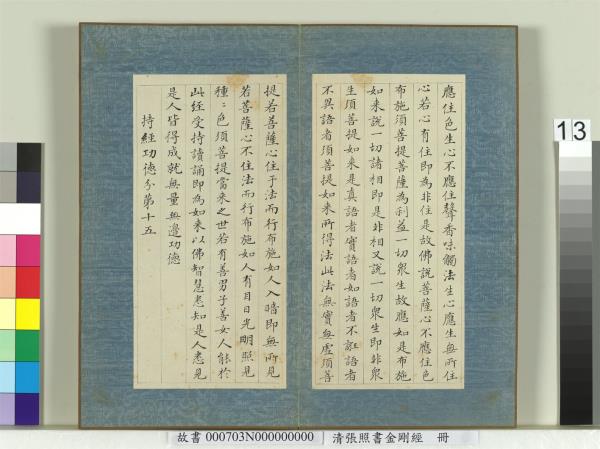 應住色生心不應住聲香味觸法生心應生無所住
心若心有住即為非住是故佛說菩薩心不應住色
布施須菩提菩薩為利益一切眾生故應如是布施
如来說一切諸相即是非相又說一切眾生即非眾
生須菩提如来是真語者實語者如語者不誑語者
不異語者須菩提如来所得法此法無實無虛須菩
提若菩薩心住于法而行布施如人入暗即無所見
若菩薩心不住法而行布施如人有目日光明照見
種〻色須菩提當来之世若有善男子善女人能於
此經受持讀誦即為如来以佛智慧悉知是人悉見
是人皆得成就無量無邊功德
持經功德分第十五
13
故書 000703N000000000 清張照書金剛經 冊